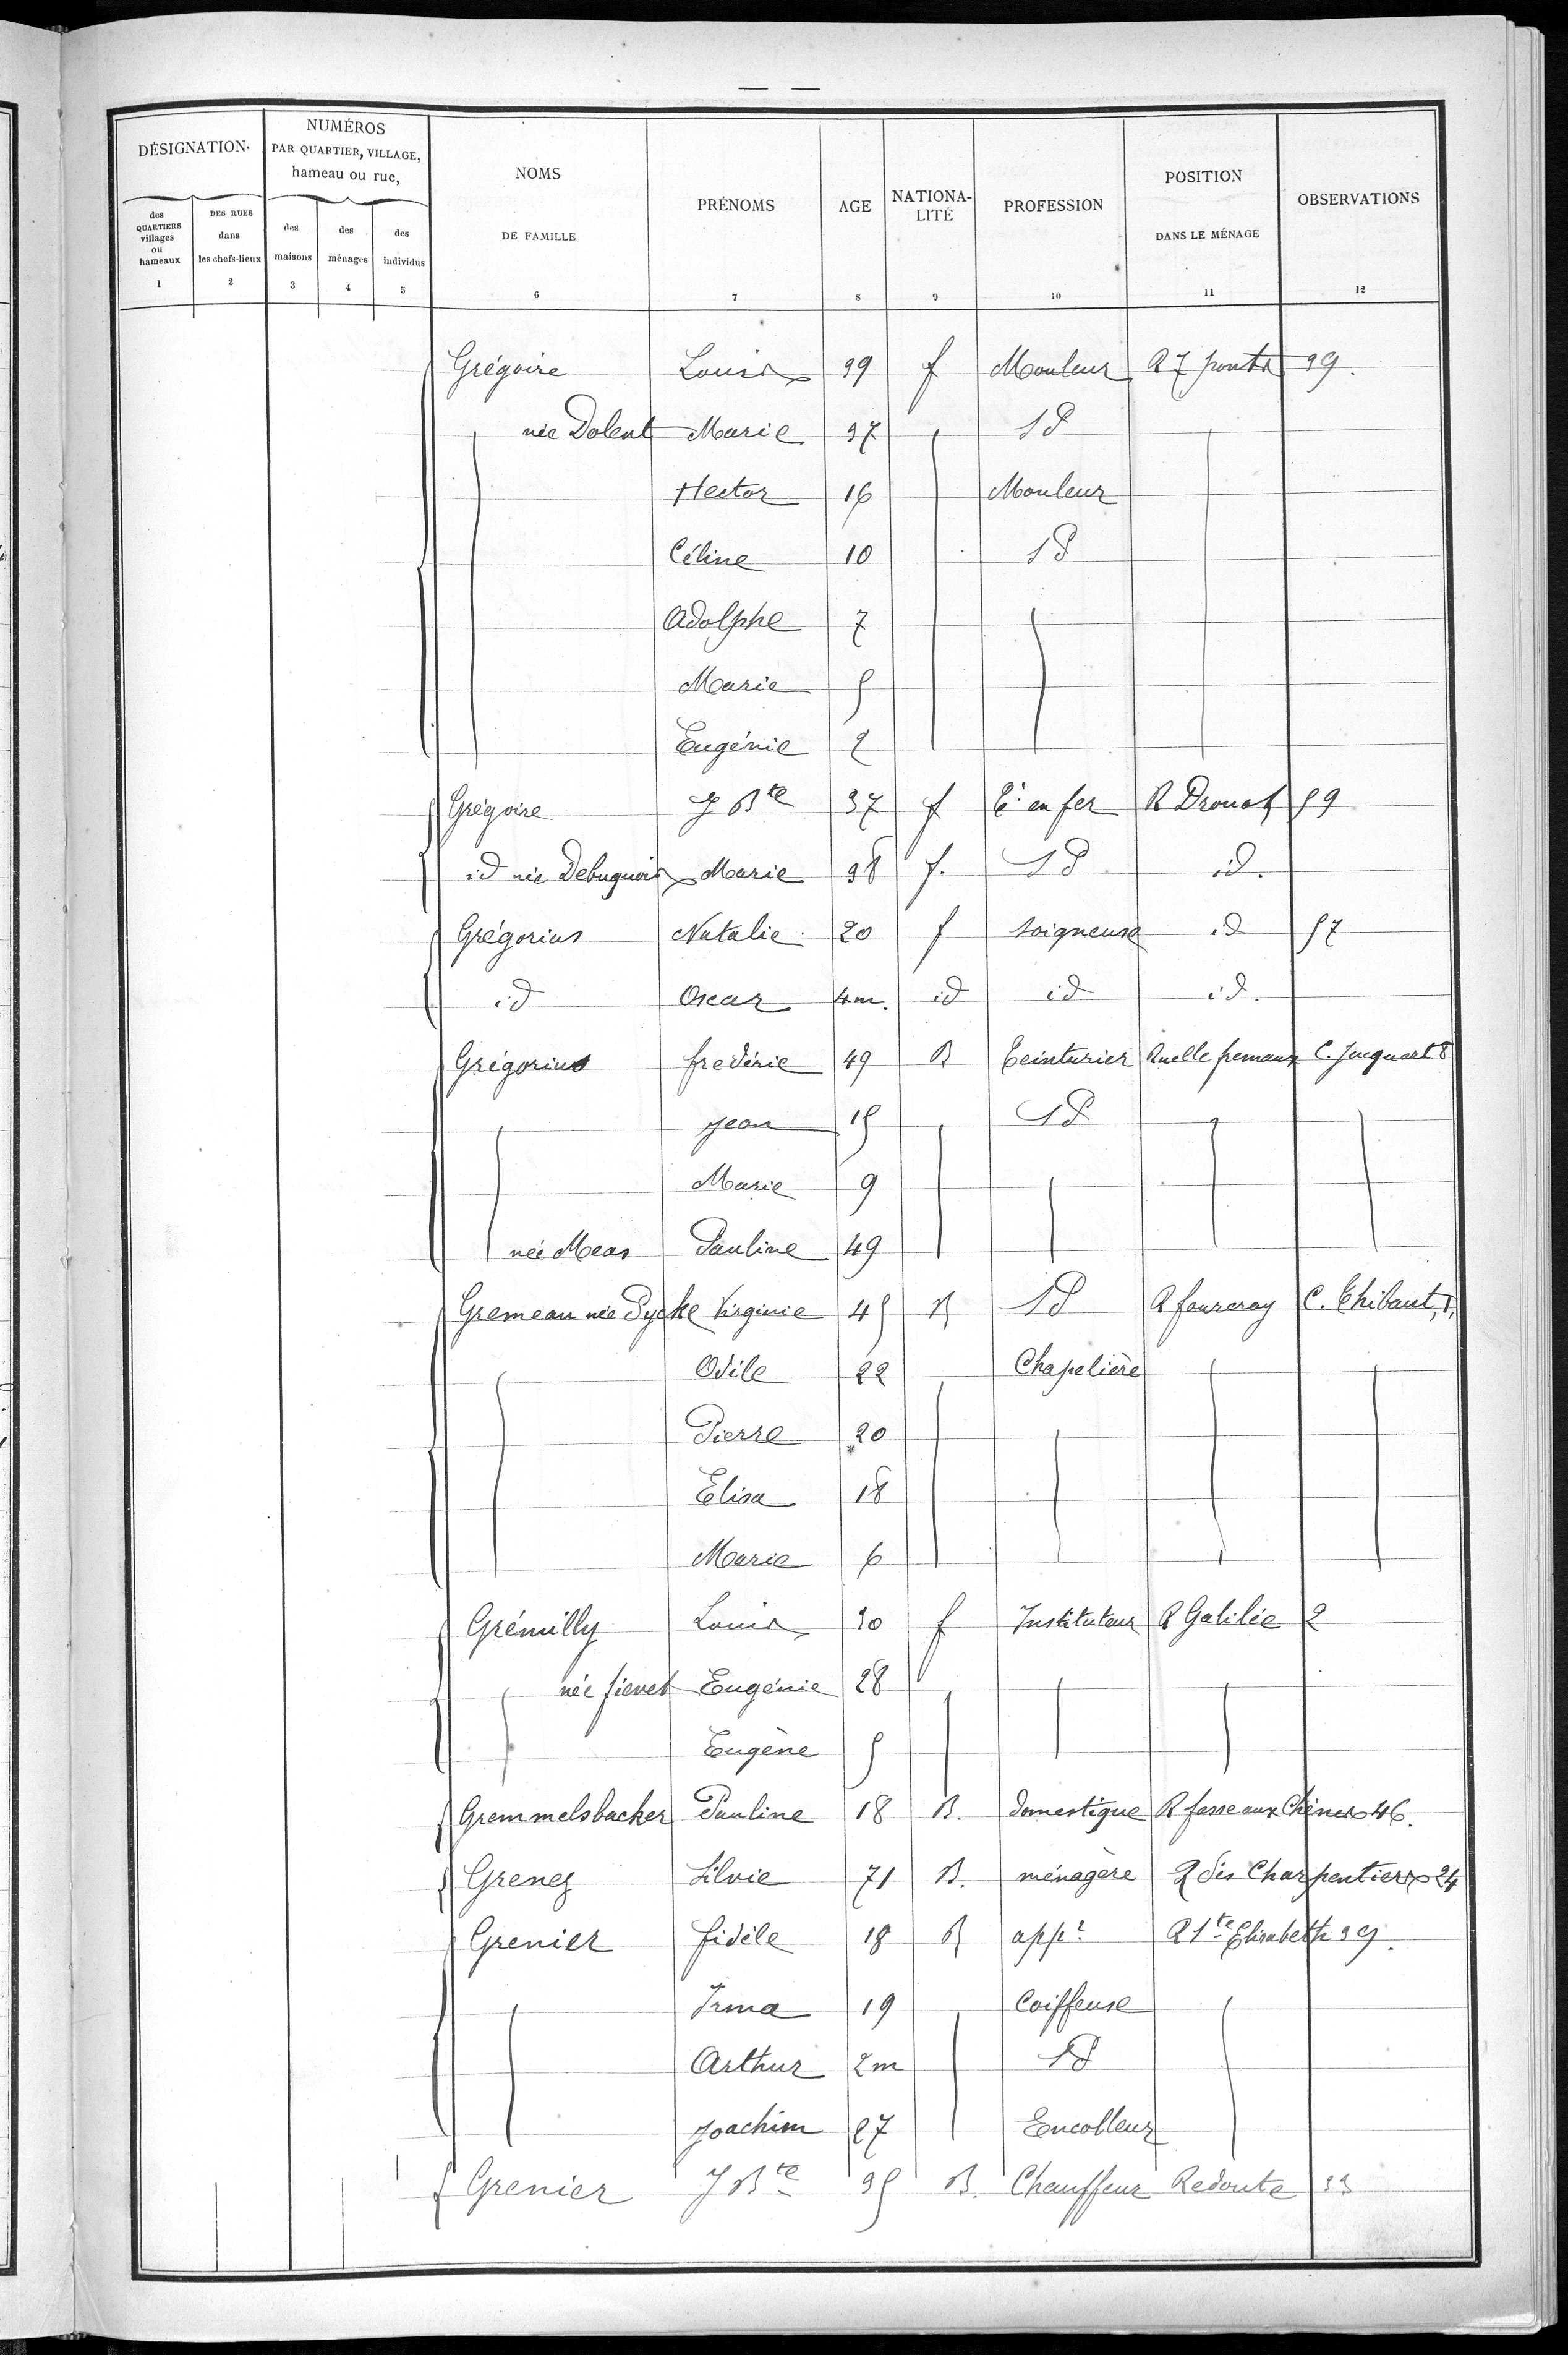 DÉSIGNATION.
NUMÉROS
PAR QUARTIER, VILLAGE,
hameau ou rue,
NOMS
DE FAMILLE
PRÉNOMS
AGE
NATIONA-
LITÉ
PROFESSION
POSITION
DANS LE MÉNAGE
OBSERVATIONS
des
QUARTIERS
villages
ou
hameaux
DES RUES
dans
les chefs-lieux
des
maisons
des
ménages
des
individus
1 2 3 4 5 6 7 8 9 10 11 12
Grégoire Louis 39 f Mouleur R 7 ponts 39.
née Dolent Marie 37 SP
Hector 16 Mouleur
Céline 10 SP
Adolphe 7
Marie 5
Eugénie 2
Grégoire J Bte 37 f T. en fer R Drouot 59
id née Debuquois Marie 38 f. SP id.
Grégorius Natalie 20 f soigneuse id 57
id Oscar 4m. id id id.
Grégorius frédéric 49 B Teinturier Ruelle fremaux C. Jacquart 8
Jean 15 SP
Marie 9
née Meas Pauline 49
Gremeau née Pycke Virginie 45 B SP R fourcroy C. Thibaut, 1,
Odile 22 Chapelière
Pierre 20
Elisa 18
Marie 6
Grémilly Louis 30 f Instituteur R Galilée 2
née fievet Eugénie 28
Eugène 5
Gremmelsbacker Pauline 18 B. domestique R fosse aux Chênes 46.
Grenez Silvie 71 B. ménagère R des Charpentiers 24
Grenier fidèle 18 B appr R Ste Elisabeth 39.
Irma 19 Coiffeuse
Arthur 2m SP
Joachim 27 Encolleur
Grenier J Bte 35 B. Chauffeur Redoute 33